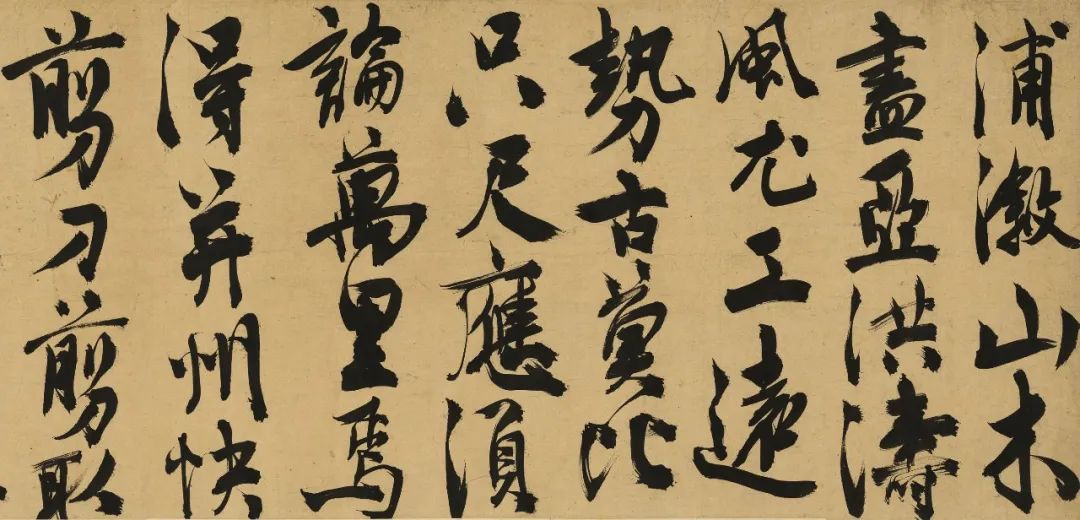 浦漵山木
盡亞洪濤
風尤工遠
勢古莫比
只尺應須
論萬里焉
得并州快
剪刀剪取